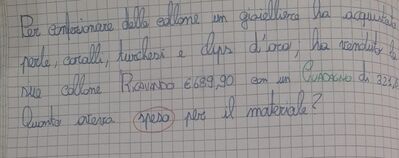 Per confezionare delle collane un gioielliere ha acquistato
perle, coralli, turchesi e clips d'oro, ha venduto le
sue collane RICAVANDO €689,90 con un GUADAGNO di
Quanto aveva speso per il materiale?